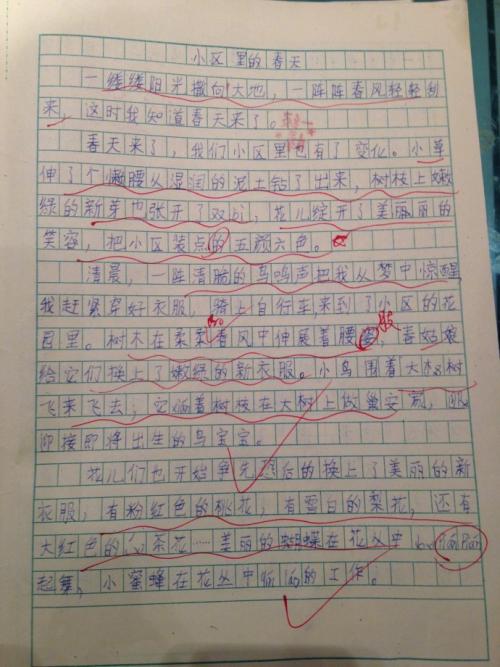 小区里的春天
一缕缕阳光撒向大地，一阵阵春风轻轻刮
来，这时我知道春天来了。
春天来了，我们小区里也有了变化。小草
伸了个懒腰从湿润的泥土钻了出来，树枝上嫩
绿的新芽也张开了双bi，花儿绽开了美丽的
笑容，把小区装点的五颜六色。
清晨，一阵清脆的鸟鸣声把我从梦中惊醒
我赶紧穿好衣服，骑上自行车，来到了小区的花
园里。树木在柔柔春风中伸展着腰，春姑娘
给它们换上了嫩绿的新衣服。小鸟围着大树
飞来飞去，它们着树枝在大树上做
迎接即将出生的鸟宝宝。
花儿们也开始争先后的换上了美丽的新
衣服，有粉红色的桃花，有雪白的梨花，还有
大红色的茶花……美丽的蝴蝶在花丛中
起舞，小蜜蜂在花丛中的工作。